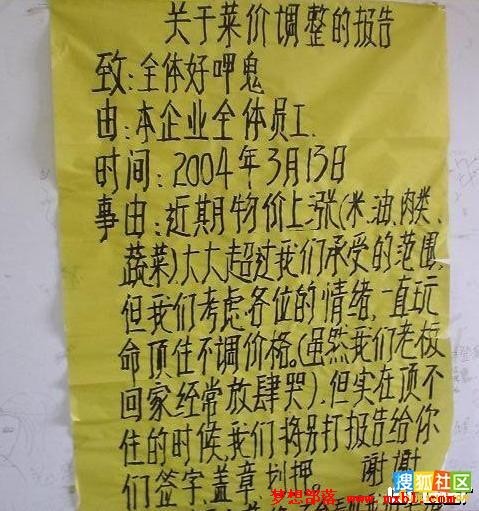 关于菜价调整的报告
致:全体好呷鬼
由:本企业全体员工.
时间:2004年3月13日
事由:近期物价上涨(米、油、肉类、
蔬菜)大大超过我们承受的范围,
但我们考虑各位的情绪,一直玩
命顶住不调价格。(虽然我们老板
回家经常放肆哭).但实在顶不
住的时候,我们将另打报告给你
们签字、盖章、划押。 谢谢
搜狐社区
梦想部落 www.mxbl1.com